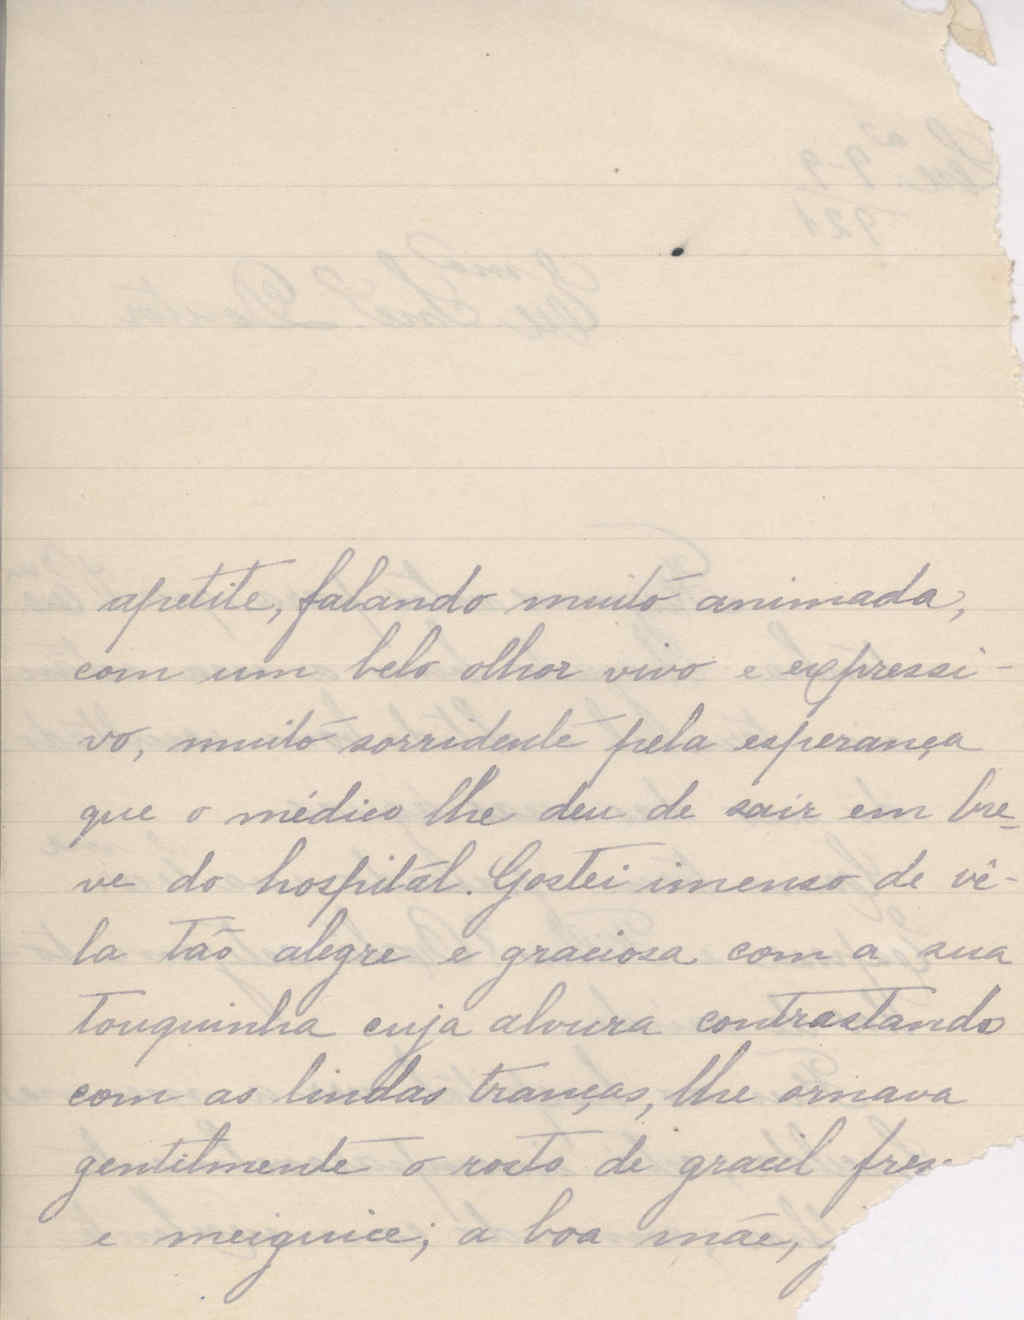 apetite, falando muito animada,
com um belo olhar vivo e expressi-
vo, muito sorridente pela esperança
que o médico lhe deu de sair em bre-
ve do hospital. Gostei imenso de vê-
la tão alegre e graciosa com a sua
touquinha cuja alvura contrastando
com as lindas tranças, lhe ornava
gentilmente o rosto de gracil
e meiguice; a boa mãe,